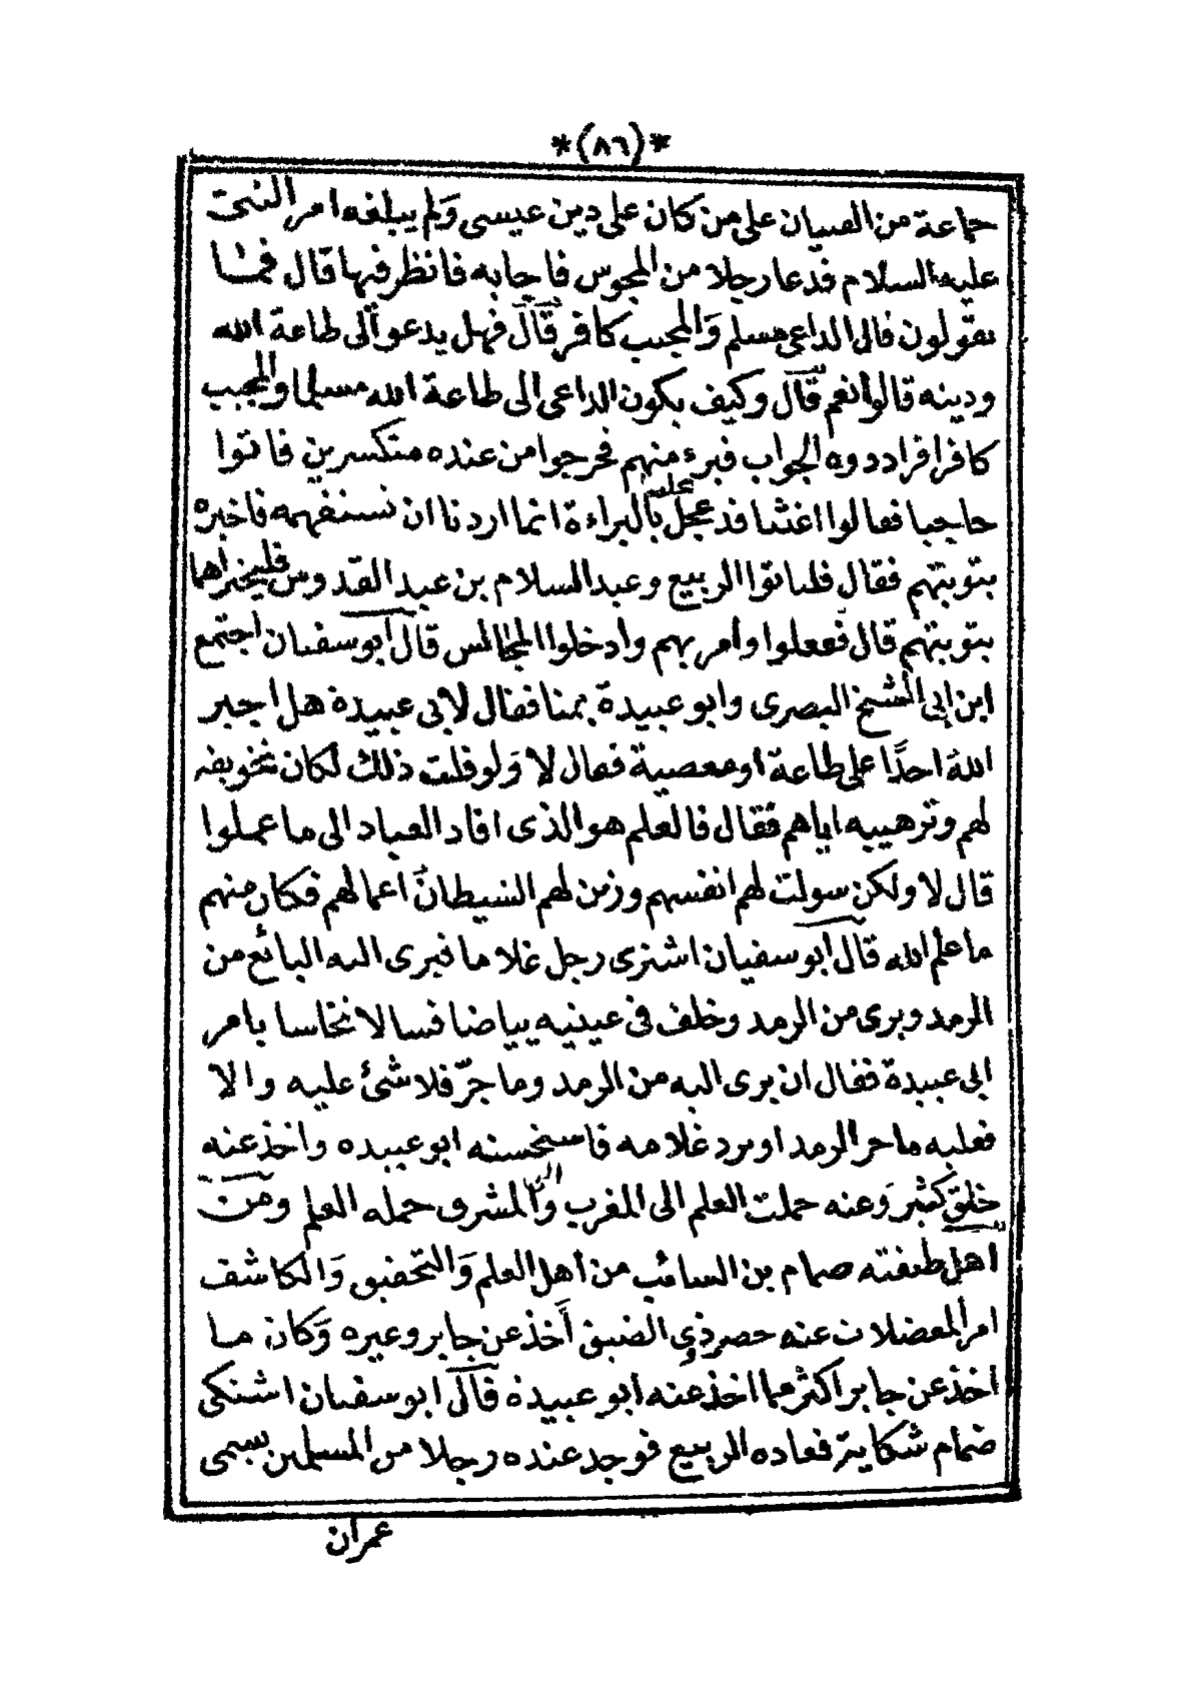 *(٨٦)*
جماعة من الفتيان على من كان على دين عيسى ولم يبلغه امر النبى
عليه السلام فدعا رجلا من المجوس فاجابه فانظر فيها قال فما
تقولون قال الداعى مسلم والمجيب كافر قال فهل يدعو الى طاعة الله
ودينه قالوا نعم قال وكيف يكون الداعى الى طاعة الله مسلما والمجيب
كافرا فرددوه الجواب فبرء منهم فخرجوا من عنده منكسرين فاتوا
حاجبا فقالوا اغثنا قد عجل علينا بالبراءة انما اردنا ان نستفهمه فاخبره
بتوبتهم فقال فلياتوا الربيع وعبد السلام بن عبد القدوس فليخبراهما
بتوبتهم قال ففعلوا وأمر بهم وأدخلوا المجالس قال أبو سفيان اجتمع
ابن ابى الشيخ البصرى وابو عبيدة بمنا فقال لابى عبيدة هل اجبر
الله احدًا على طاعة أو معصية فقال لا ولو قلت ذلك لكان تخويفه
لهم وترهيبه اياهم فقال فالعلم هو الذى اقاد العباد الى ما عملوا
قال لا ولكن سولت لهم انفسهم وزين لهم الشيطان أعمالهم فكان منهم
ما علم الله قال أبو سفيان اشترى رجل غلاما فبرى اليه البائع من
الرمد وبرى من الرمد وخلف فى عينيه بياضا فسالا نخاسا بامر
ابى عبيدة فقال ان برى اليه من الرمد وما جرّ فلا شئ عليه والا
فعليه ما جر الرمد او يرد غلامه فاستحسنه ابو عبيده واخذ عنه
خلق كثير وعنه حملت العلم الى المغرب والى المشرق حمله العلم ومن
اهل طبقته ضمام بن السائب من أهل العلم والتحقيق والكاشف
امر المعضلات عنه حصر ذوى الضيق أخذ عن جابر وغيره وكان ما
اخذ عن جابر اكثر مما اخذ عنه أبو عبيدة قال ابو سفيان اشتكى
ضمام شكاية فعاده الربيع فوجد عنده رجلا من المسلمين يسمى
عمران